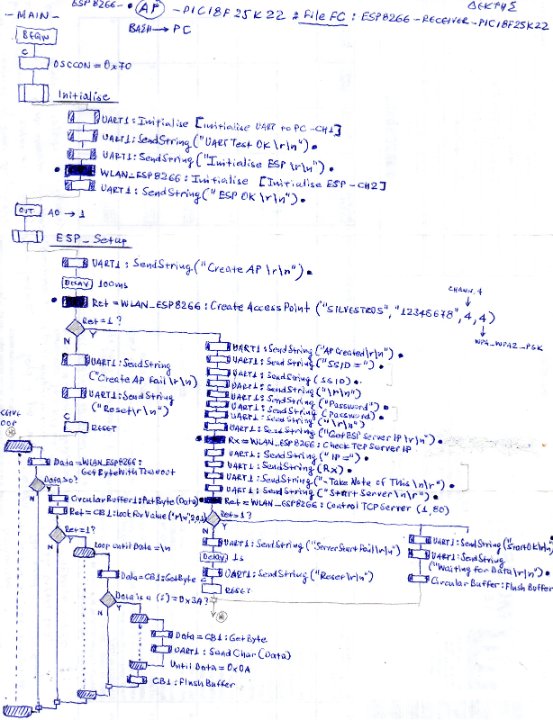 ΔΕΚΤΗΣ
ESP8266 - AP - PIC18F25K22 : File FC : ESP8266-RECEIVER-PIC18F25K22
BASH → PC
-MAIN-
BEGIN
C
OSCCON = 0x70
Initialise
UART1: Initialise [initialise UART to PC - CH1]
UART1: SendString ("UART Test OK \r\n")
UART1: SendString ("Initialise ESP \r\n")
WLAN_ESP8266: Initialise [Initialise ESP - CH2]
UART1: SendString ("ESP OK \r\n")
OUT A0 → 1
ESP_Setup
UART1: SendString ("Create AP \r\n")
DELAY 100ms
CHANN. 4
Ret = WLAN_ESP8266: Create Access Point ("SILVESTROS", "12345678", 4, 4)
WPA_WPA2_PSK
Ret=1?
N
Y
UART1: SendString ("Create AP Fail \r\n")
UART1: SendString ("Reset \r\n")
C
RESET
UART1: SendString ("AP Created \r\n")
UART1: SendString ("SSID = ")
UART1: SendString (SSID)
UART1: SendString ("\r\n")
UART1: SendString ("Password")
UART1: SendString (Password)
UART1: SendString ("\r\n")
UART1: SendString ("Get ESP Server IP \r\n")
Rx = WLAN_ESP8266: Check TCP Server IP
UART1: SendString ("IP = ")
UART1: SendString (Rx)
UART1: SendString ("-Take Note of This \n\r")
UART1: SendString ("Start Server \n\r")
Ret = WLAN_ESP8266: Control TCP Server (1, 80)
Ret=1?
N
Y
UART1: SendString ("Server Start Fail \r\n")
DELAY 1s
UART1: SendString ("Reset \r\n")
RESET
UART1: SendString ("Start OK \r\n")
UART1: SendString ("Waiting for Data \r\n")
Circular Buffer: Flush Buffer
LOOP
Data = WLAN_ESP8266: Get Byte With Timeout
Data>0?
N
Y
Circular Buffer1: Put Byte (Data)
Ret = CB1: Look For Value ("\r\n",
Ret=1?
N
Y
Loop until Data = \n
Data = CB1: Get Byte
Data is a (:) = 0x3A?
N
Y
Data = CB1: Get Byte
UART1: Send Char (Data)
Until Data = 0x0A
CB1: Flush Buffer